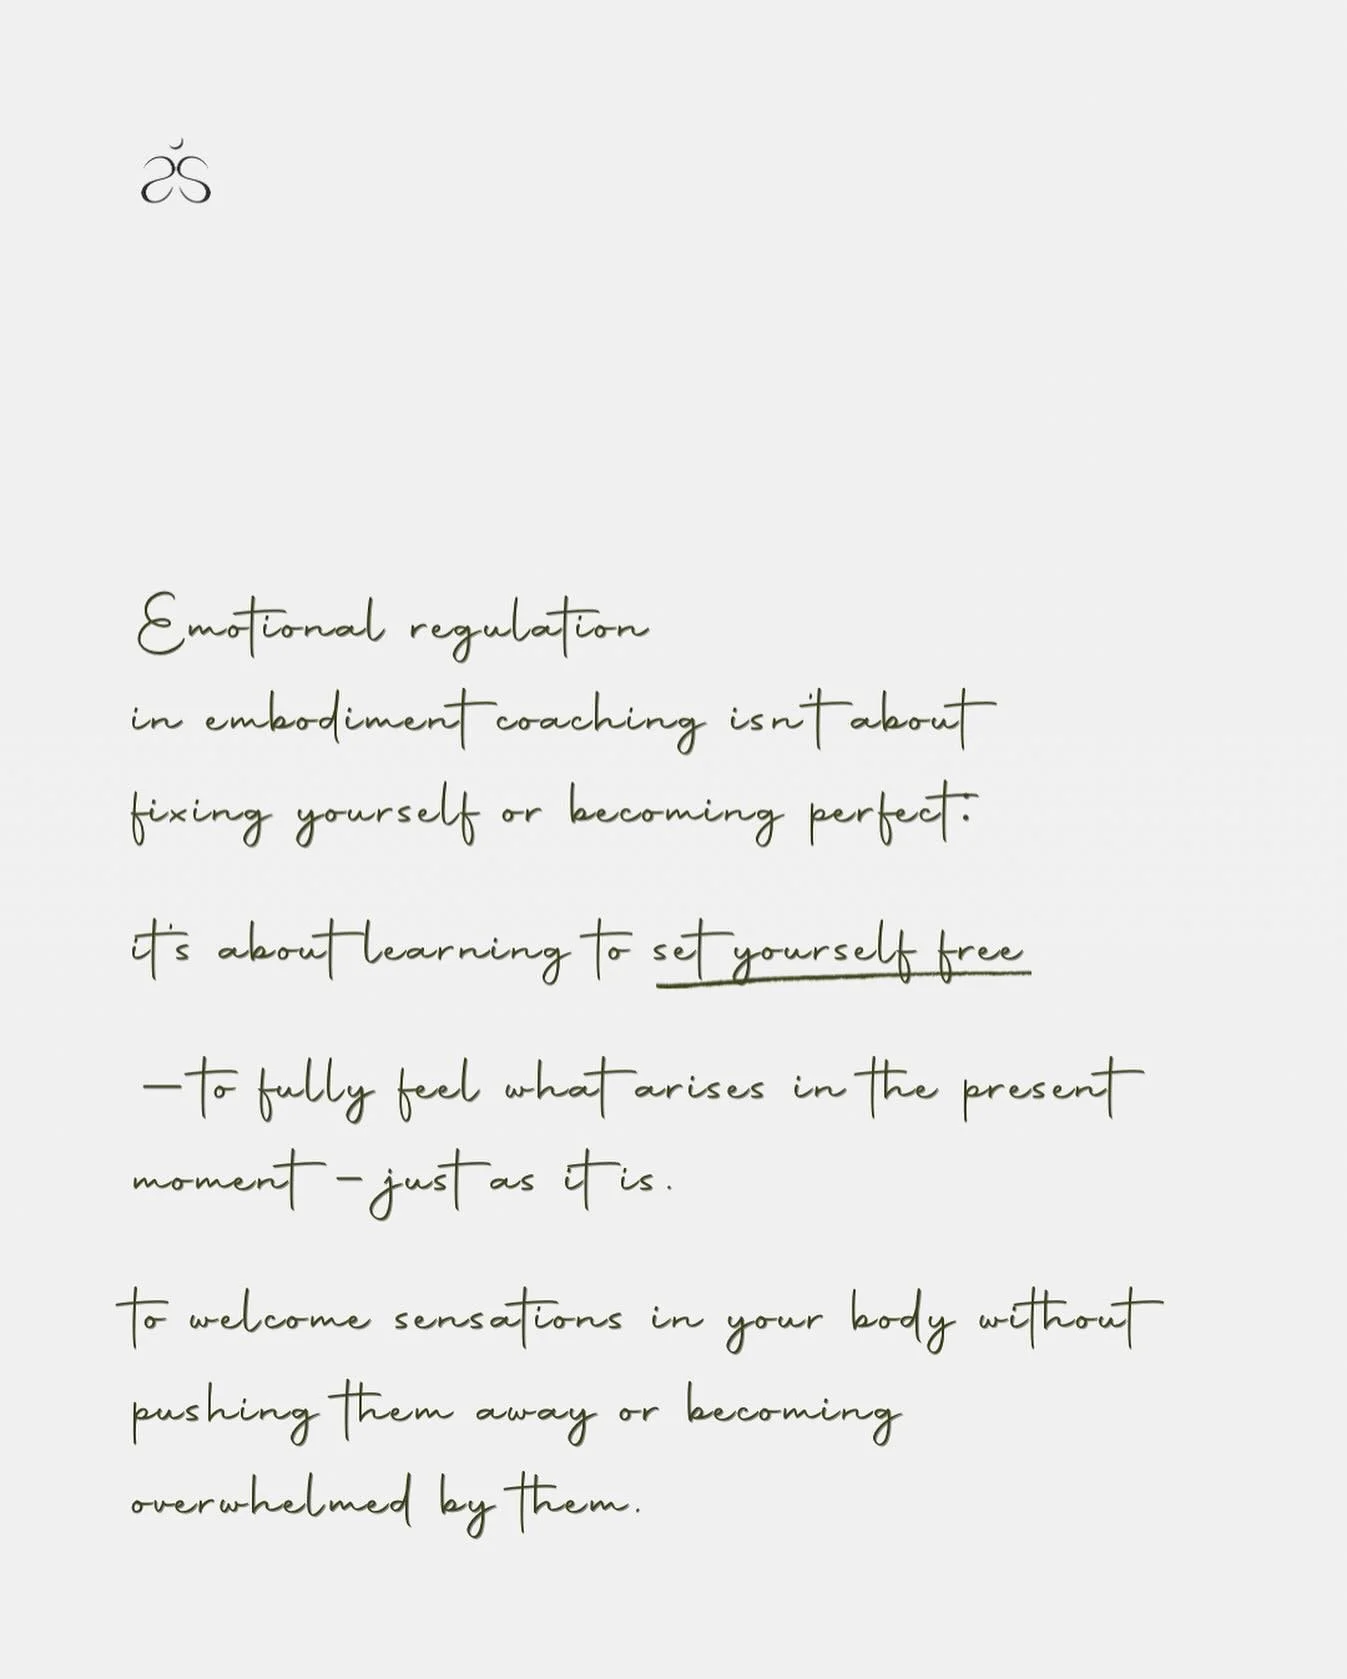 Emotional regulation
in embodiment coaching isn't about
fixing yourself or becoming perfect:
it's about learning to set yourself free
—to fully feel what arises in the present
moment – just as it is.
to welcome sensations in your body without
pushing them away or becoming
overwhelmed by them.